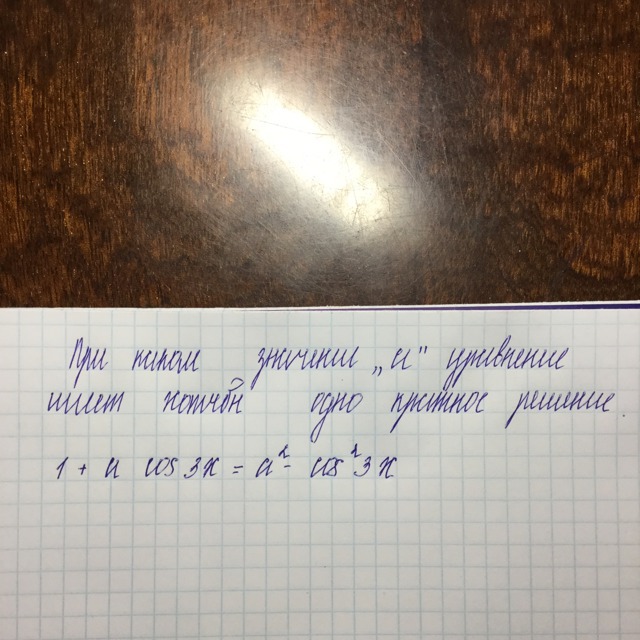 При каком значении „а" уравнение
имеет хотябы одно кратное решение.
1 + a cos 3x = a² - cos² 3x